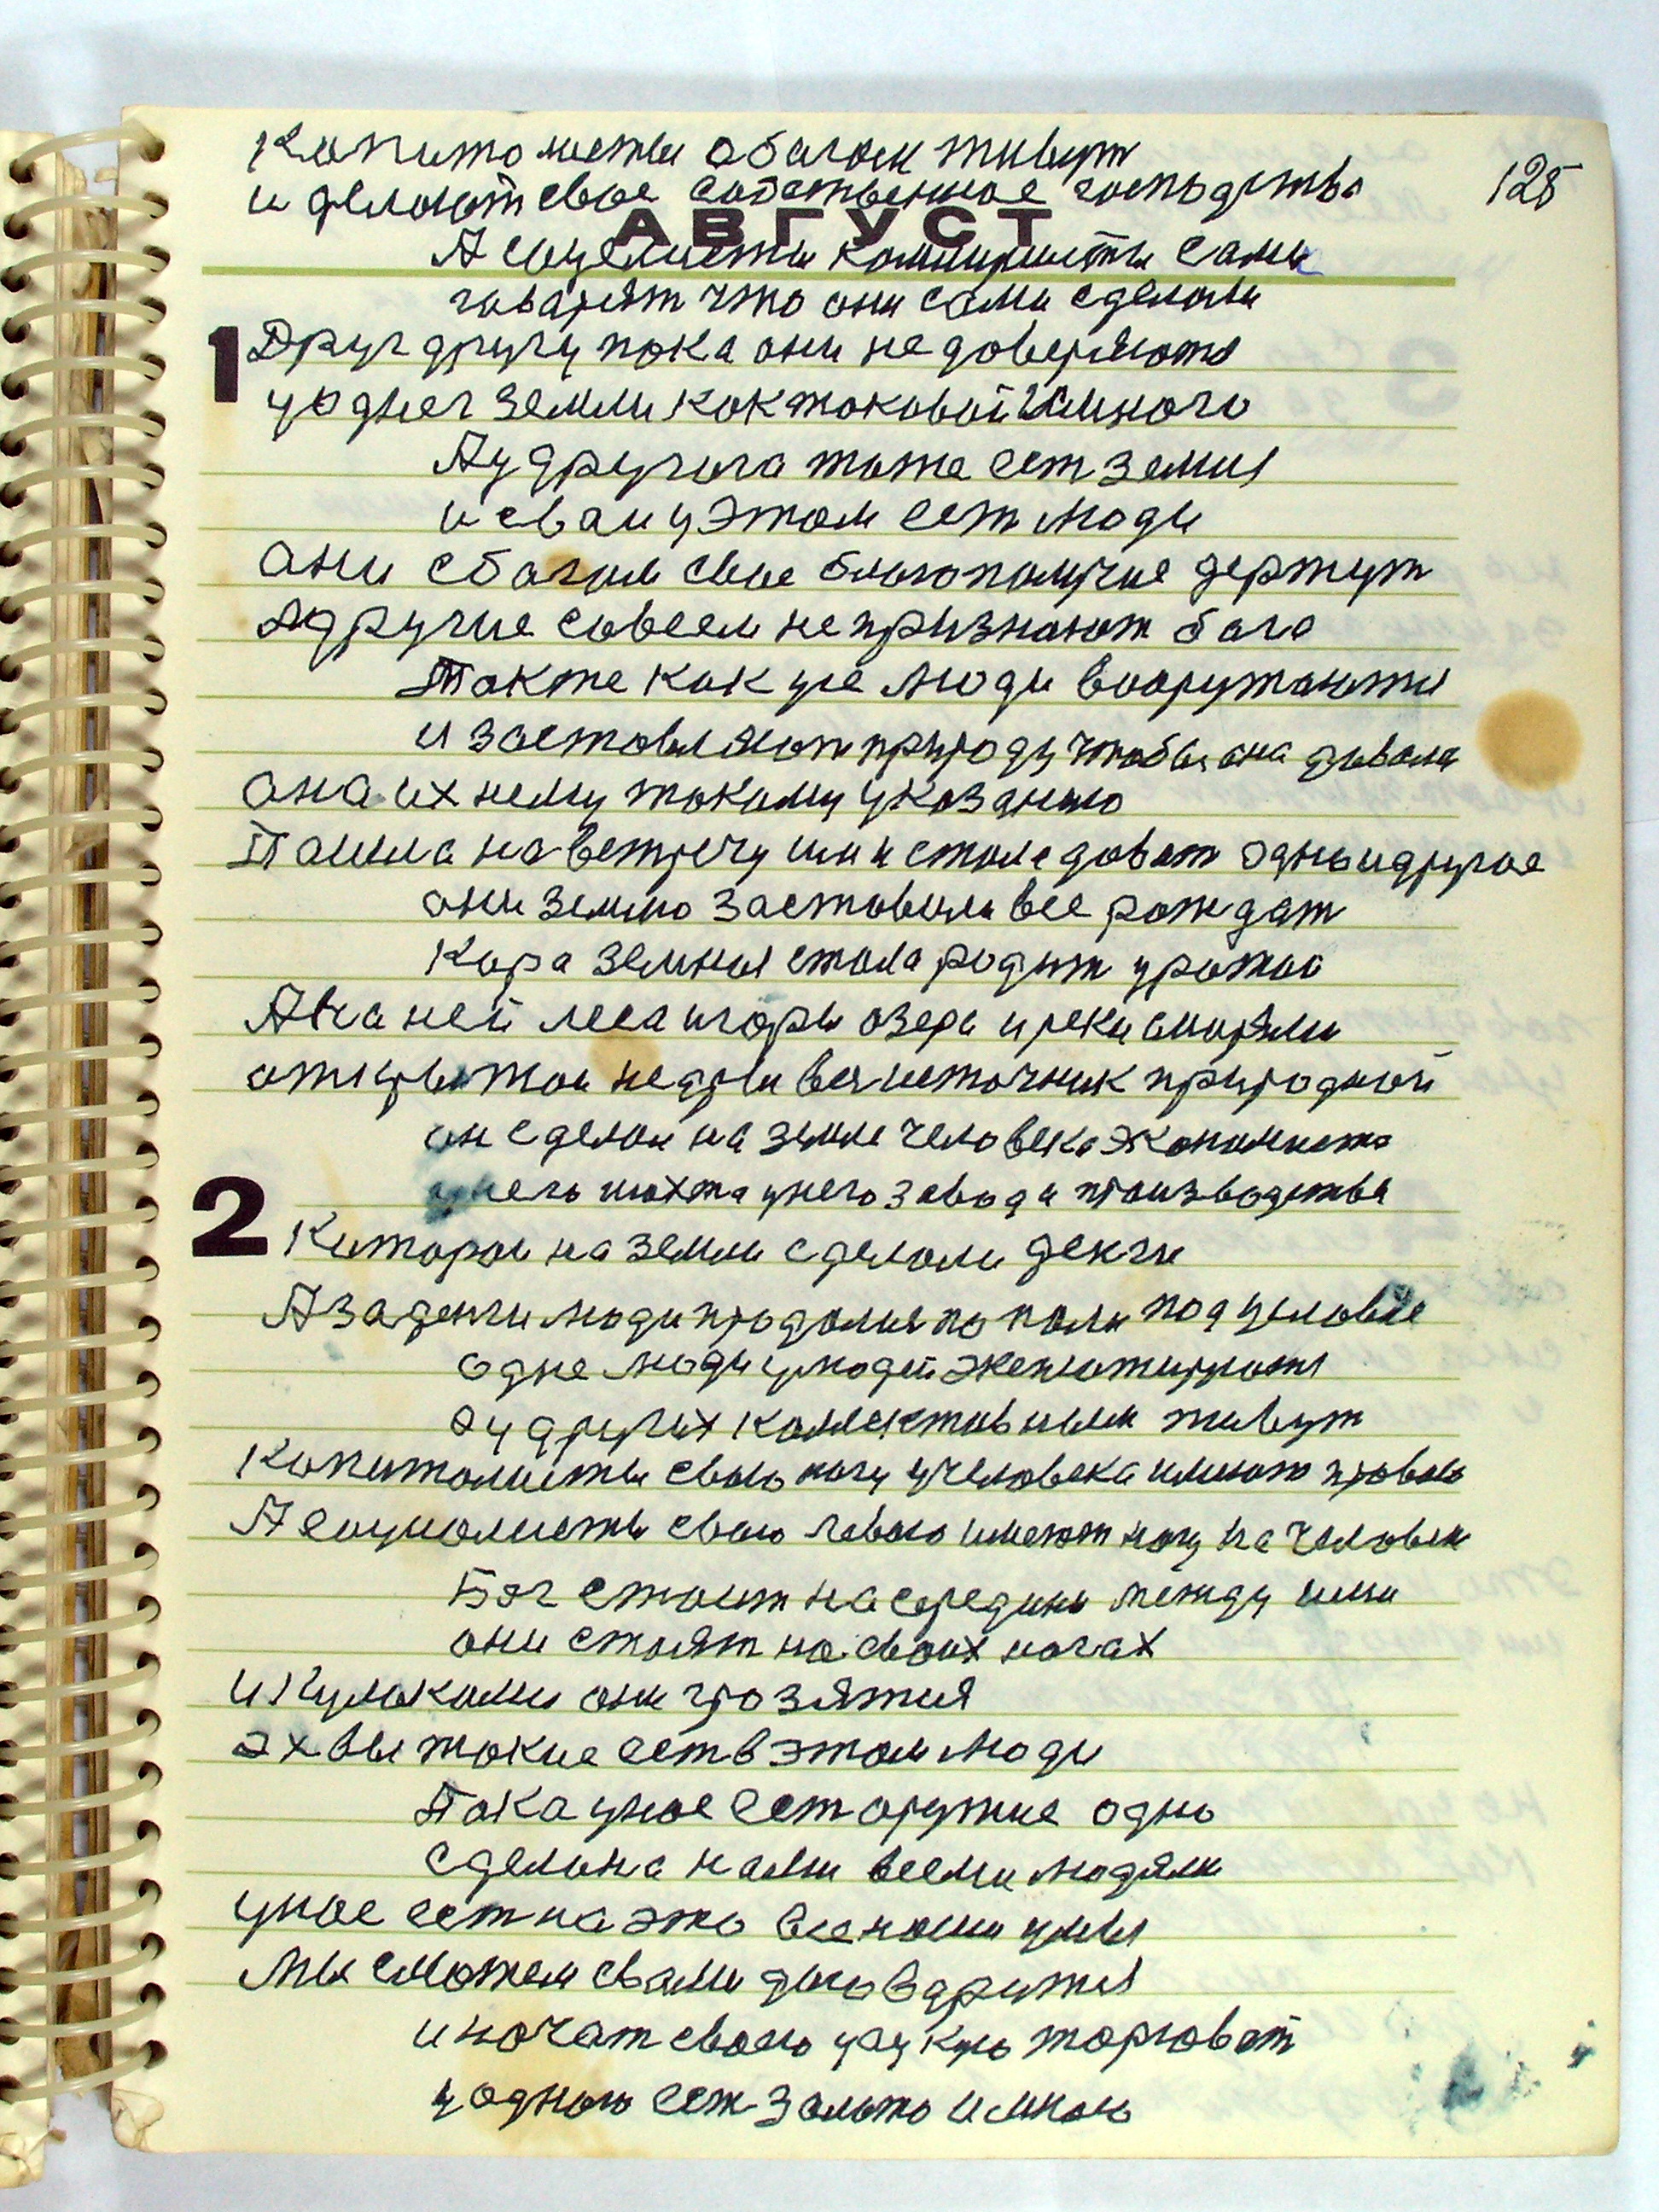 Капитолисты абагом живут
и делают свое собственное господство
128
АВГУСТ
А соцелисты коммунисты сами
гаварят что они сами сделали
1
Друг другу пока они не доверяются
у однаг земли как таковой и много
А у другога тоже ест земля
и свои у этом ест люди
они с богом свое благополучие держут
А другие совсем не признают бога
Также как уже люди вооружаются
и заставляют природу чтобы она давала
она ихнему такому указанию
Пашла на встречу им и стала дават одно и другое
они землю заставили все рождат
Кора земная стала родит урожаи
А на ней леса и горы озера и реки с морями
открытои недры вся источник природной
он сделал на земле человека экономиста
у него шахта у него завода производства
Которои на земли сделали денги
А за денги люди продались попали под условие
одне люди у людей эксплотируются
а у других коллективными живут
Капитолисты свою ногу у человека имеют правою
А социолисты свою левою имеют ногу на человеке
Бог стоит на средине между ими
они стоят на своих ногах
и кулаками они грозятся
2
эх вы такие ест в этом люди
Пака у нас ест оружие одно
сделана нами всеми людями
у нас ест на это все наши умы
Мы сможем с вами договарится
и начат свою торговат
у одного ест золото и много